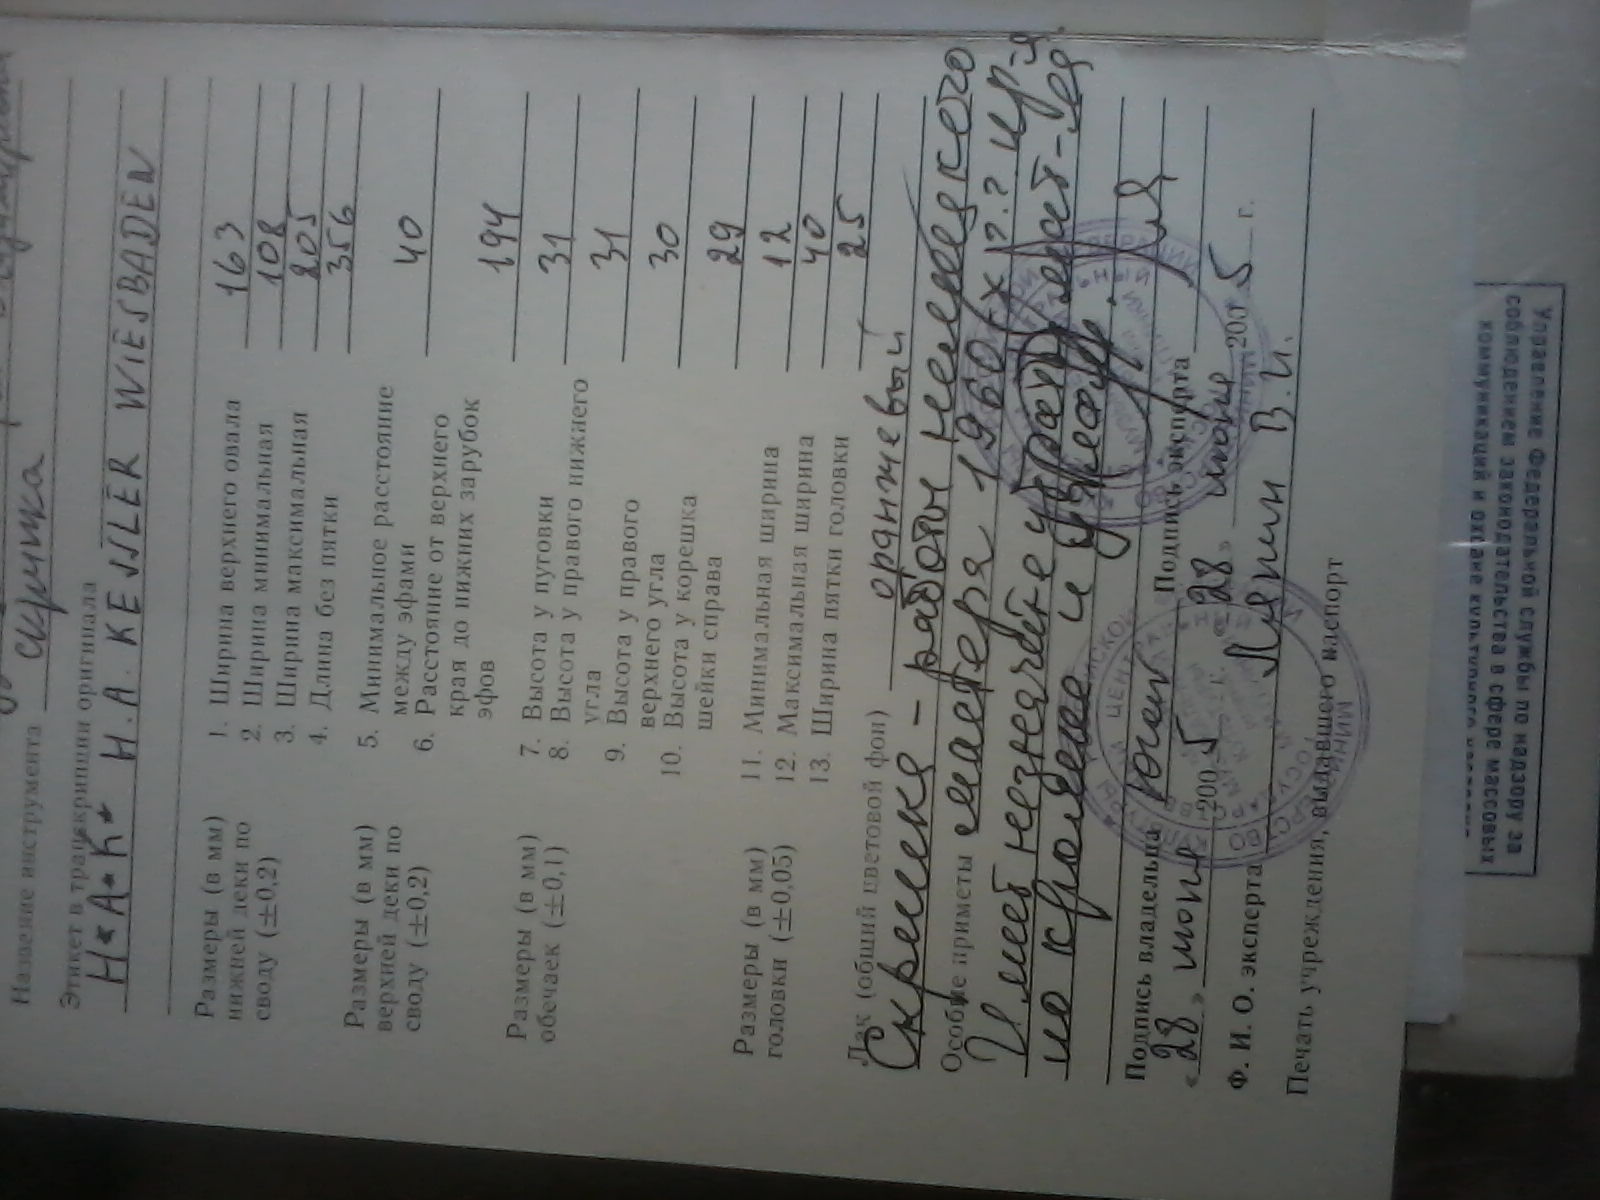 Название инструмента скрипка
Этикет в транскрипции оригинала
H*A*K* H.A. KESSLER WIESBADEN
Размеры (в мм) нижней деки по своду (±0,2)
1. Ширина верхнего овала 163
2. Ширина минимальная 108
3. Ширина максимальная 205
4. Длина без пятки 356
Размеры (в мм) верхней деки по своду (±0,2)
5. Минимальное расстояние между эфами 40
6. Расстояние от верхнего края до нижних зарубок эфов 194
Размеры (в мм) обечаек (±0,1)
7. Высота у пуговки 31
8. Высота у правого нижнего угла 31
9. Высота у правого верхнего угла 30
10. Высота у корешка шейки справа 29
Размеры (в мм) головки (±0,05)
11. Минимальная ширина 12
12. Максимальная ширина 40
13. Ширина пятки головки 25
Лак (общий цветовой фон) оранжевый
Скрипка – работы немецкого
Особые приметы мастера 1960х г.г.
Имеет незначит-е
по кромке и
Подпись владельца Подпись эксперта
«28» июня 2005 «28» июня 2005 г.
Ф. И. О. эксперта В. И.
Печать учреждения, выдавшего паспорт
Управление Федеральной службы по надзору за
соблюдением законодательства в сфере массовых
коммуникаций и охране культурного